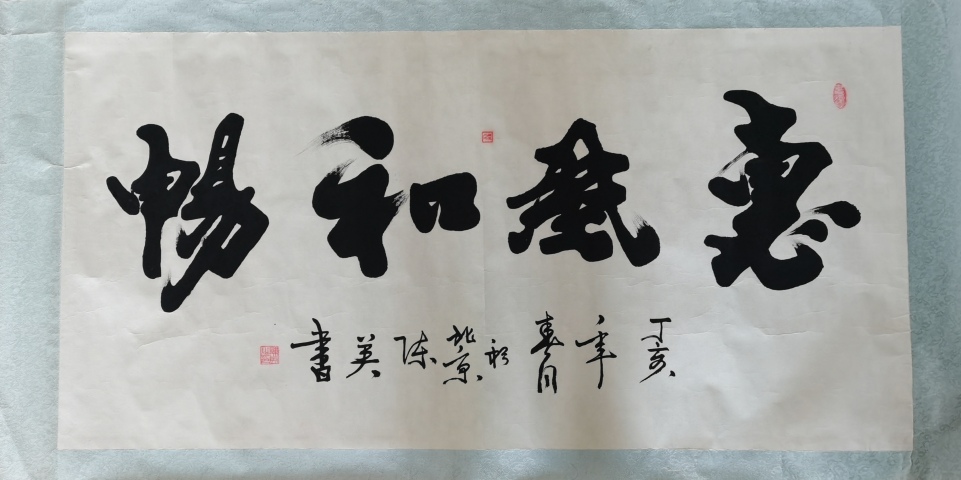 惠風和暢
丁亥年春月於北京陈英書